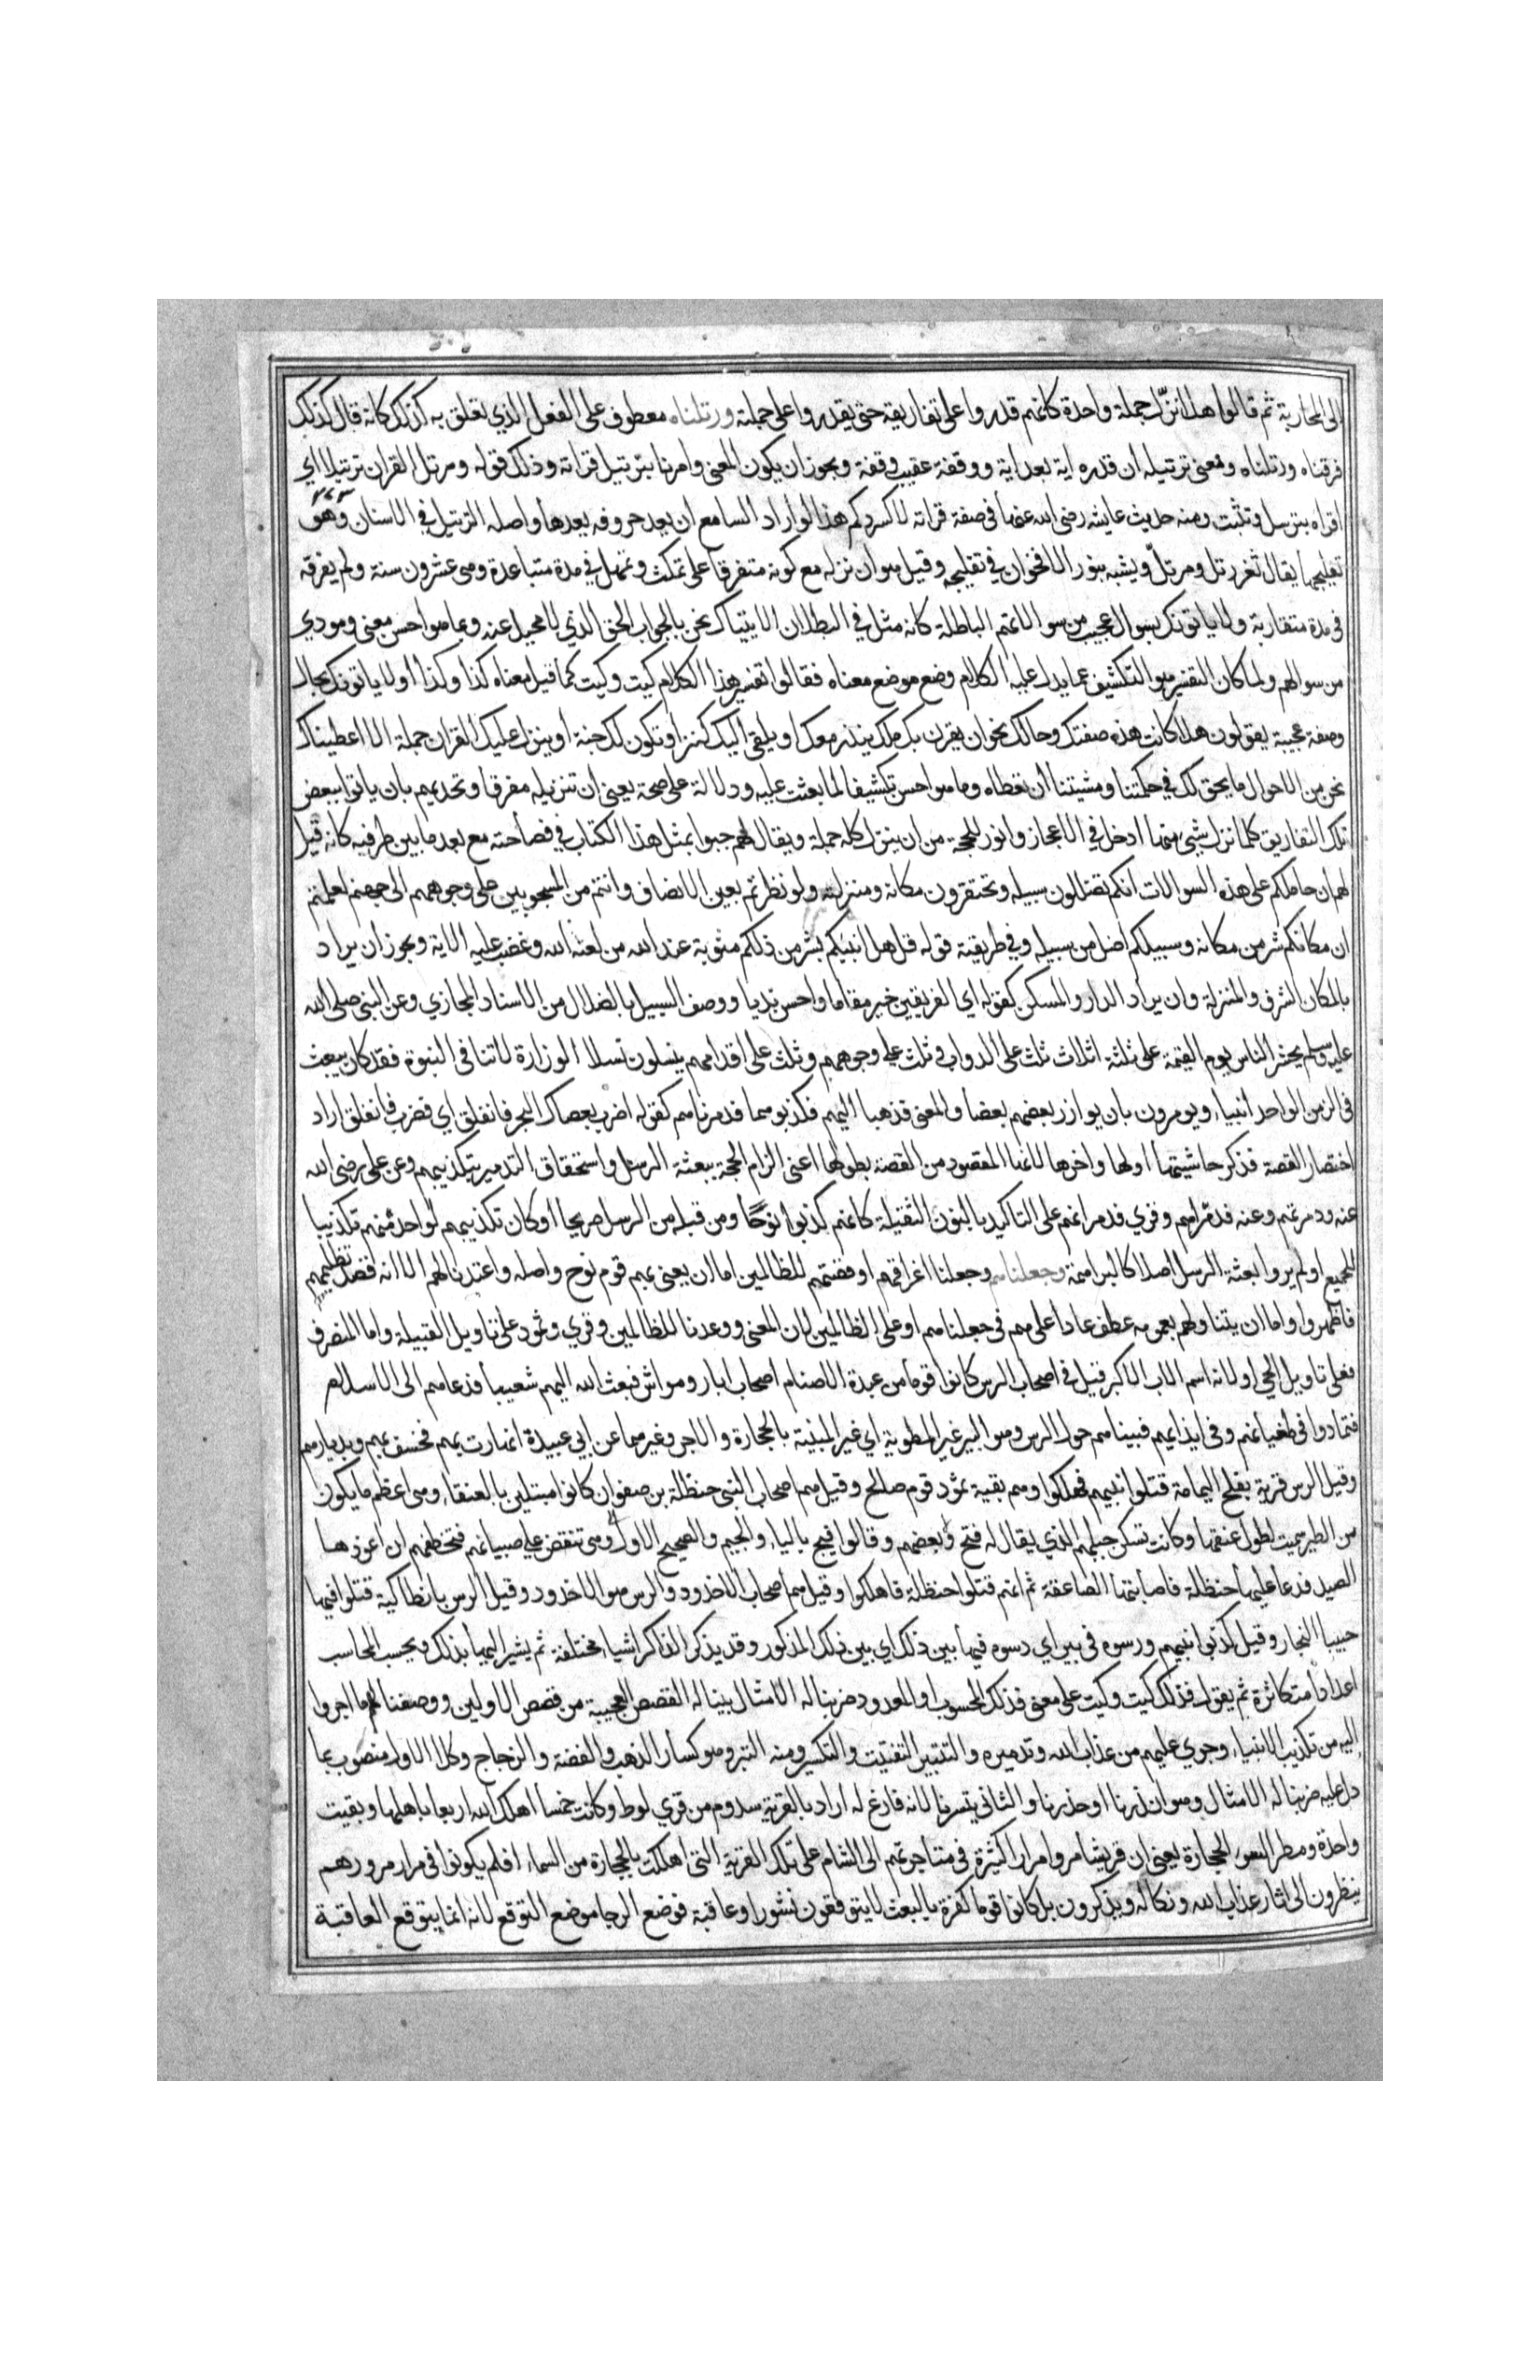 الى المحاربة ثم قالوا هلا نزل جملة واحدة كانهم قدروا على تفاريقه حتى يقدروا على جملته ورتلناه معطوف على الفعل الذي تعلق به كذلك كانه قال كذلك
فرقناه ورتلناه ومعنى ترتيله ان قدره اية بعد اية ووقفة عقيب وقفة ويجوز ان يكون المعنى وامرنا بترتيل قراته وذلك قوله ورتل القران ترتيلا اي
اقراه بترسل وتثبت ومنه حديث عايشه رضى الله عنها في صفة قراته لا كسردكم هذا لو اراد السامع ان يعد حروفه يعدها واصله الترتيل في الاسنان وهو
تفليجها يقال ثغر رتل ومرتل ويشبه بنور الاقحوان في تفليجه وقيل هو ان نزله مع كونه متفرقا على تمكث وتمهل في مدة متباعدة وهى عشرون سنة ولم يفرقه
في مدة متقاربة ولا ياتونك بسوال عجيب من سوالاتهم الباطلة كانه مثل في البطلان الا اتيناك نحن بالجواب الحق الذي لا محيل عنه وبما هو احسن معنى ومودي
من سوالهم ولما كان التفسير هو التكشيف عما يدل عليه الكلام وضع موضع معناه فقالوا تفسير هذا الكلام كيت وكيت كما قيل معناه كذا وكذا او لا ياتونك بحال
وصفة عجيبة يقولون هلا كانت هذه صفتك وحالك نحو ان يقرن بك ملك ينذر معك او يلقى اليك كنز او تكون لك جنة او ينزل عليك القران جملة الا اعطيناك
نحن من الاحوال ما يحق لك في حكمتنا ومشيتنا ان تعطاه وما هو احسن تكشيفا لما بعثت عليه ودلالة على صحته يعنى ان تنزيله مفرقا وتحديهم بان ياتوا ببعض
تلك التفاريق كلما نزل شيى منها ادخل في الاعجاز وانور للحجة من ان ينزل كله جملة ويقال لهم جيوا بمثل هذا الكتاب في فصاحته مع بعد ما بين طرفيه كانه قيل
لهم ان حاملكم على هذه السوالات انكم تضللون سبيله وتحتقرون مكانه ومنزلته ولو نظرتم بعين الانصاف وانتم من المسحوبين على وجوههم الى جهنم لعلمتم
ان مكانكم شر من مكانه وسبيلكم اضل من سبيله وفي طريقته قوله قل هل انبئكم بشر من ذلكم مثوبة عند الله من لعنه الله وغضب عليه الاية ويجوز ان يراد
بالمكان الشرف والمنزلة وان يراد الدار والمسكن كقوله اي الفريقين خير مقاما واحسن نديا ووصف السبيل بالضلال من الاسناد المجازي وعن النبى صلى الله
عليه وسلم يحشر الناس يوم القيمة على ثلثة اثلاث ثلث على الدواب وثلث على وجوههم وثلث على اقدامهم ينسلون نسلا الوزارة لا تنافى النبوة فقد كان يبعث
في الزمن الواحد انبياء ويومرون بان يوازر بعضهم بعضا والمعنى فذهبا اليهم فكذبوهما فدمرناهم كقوله اضرب بعصاك البحر فانفلق اي فضرب فانفلق اراد
اختصار القصة فذكر حاشيتيها اولها واخرها لانهما المقصود من القصة بطولها اعنى الزام الحجة ببعثة الرسل واستحقاق التدمير بتكذيبهم وعن على رضى الله
عنه ودمرتهم وعنه فدمراهم وقري فدمرانهم على التاكيد بالنون الثقيلة كانهم كذبوا نوحا ومن قبله من الرسل صريحا او كان تكذيبهم لواحد منهم تكذيبا
للجميع او لم يروا بعثة الرسل اصلا كالبراهمة وجعلناهم وجعلنا اغراقهم او قصتهم للظالمين اما ان يعنى بهم قوم نوح واصله واعتدنا لهم الا انه قصد تظليمهم
فاظهروا واما ان يتناولهم بعمومه عطف عادا على هم في جعلناهم او على الظالمين لان المعنى ووعدنا للظالمين وقري وثمود على تاويل القبيلة واما المنصرف
فعلى تاويل الحي او لانه اسم الاب الاكبر قيل في اصحاب الرس كانوا قوما من عبدة الاصنام اصحاب ابار ومواش فبعث الله اليهم شعيبا فدعاهم الى الاسلام
فتمادوا في طغيانهم وفي ايذايهم فبيناهم حول الرس وهو البير غير المطوية اي غير المبنية بالحجارة والاجر وغيرهما عن ابي عبيدة انهارت بهم فخسف بهم وبديارهم
وقيل الرس قرية بفلج اليمامة قتلوا نبيهم فهلكوا وهم بقية ثمود قوم صالح وقيل هم اصحاب النبى حنظلة بن صفوان كانوا مبتلين بالعنقاء وهى اعظم ما يكون
من الطير سميت لطول عنقها وكانت تسكن جبلهم الذي يقال له فتح وبعضهم وقالوا فيج بالياء والجيم والصحيح الاول وهى تنقض على صبيانهم فتخطفهم ان اعوزها
الصيد فدعا عليها حنظلة فاصابتها الصاعقة ثم انهم قتلوا حنظلة فاهلكوا وقيل هم اصحاب الاخدود والرس هو الاخدود وقيل الرس بانطاكية قتلوا فيها
حبيبا النجار وقيل كذبوا نبيهم ورسوه في بير اي دسوه فيها بين ذلك اي بين ذلك المذكور وقد يذكر الذاكر اشياء مختلفة ثم يشير اليها بذلك ويحسب الحاسب
اعدادا متكاثرة ثم يقول فذلك كيت وكيت على معنى فذلك المحسوب او المعدود ضربنا له الامثال بينا له القصص العجيبة من قصص الاولين ووصفنا لهم ما اجروا
اليه من تكذيب الانبياء وجري عليهم من عذاب الله وتدميره والتتبير التفتيت والتكسير ومنه التبر وهو كسار الذهب والفضة والزجاج وكلا الاول منصوب بما
دل عليه ضربنا له الامثال وهو انذرنا او حذرنا والثانى بتبرنا لانه فارغ له اراد بالقرية سدوم من قري لوط وكانت خمسا اهلك الله اربعا باهلها وبقيت
واحدة ومطر السوء الحجارة يعنى ان قريشا مروا مرارا كثيرة في متاجرتهم الى الشام على تلك القرية التى اهلكت بالحجارة من السماء افلم يكونوا في مرار مرورهم
ينظرون الى اثار عذاب الله ونكاله ويذكرون بل كانوا قوما كفرة بالبعث لا يتوقعون نشورا وعاقبة فوضع الرجا موضع التوقع لانه انما يتوقع العاقبة